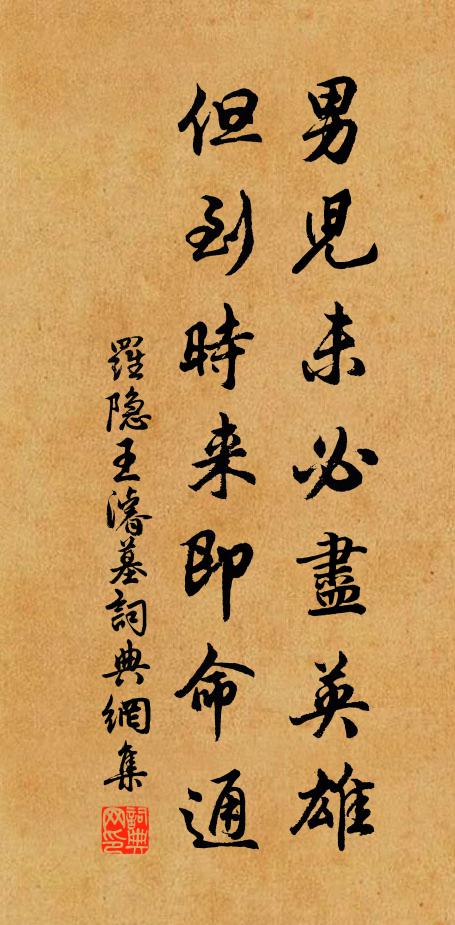 男兒未必盡英雄
但到時来即命通
羅隐王濬墓詞典網集
詞典网印